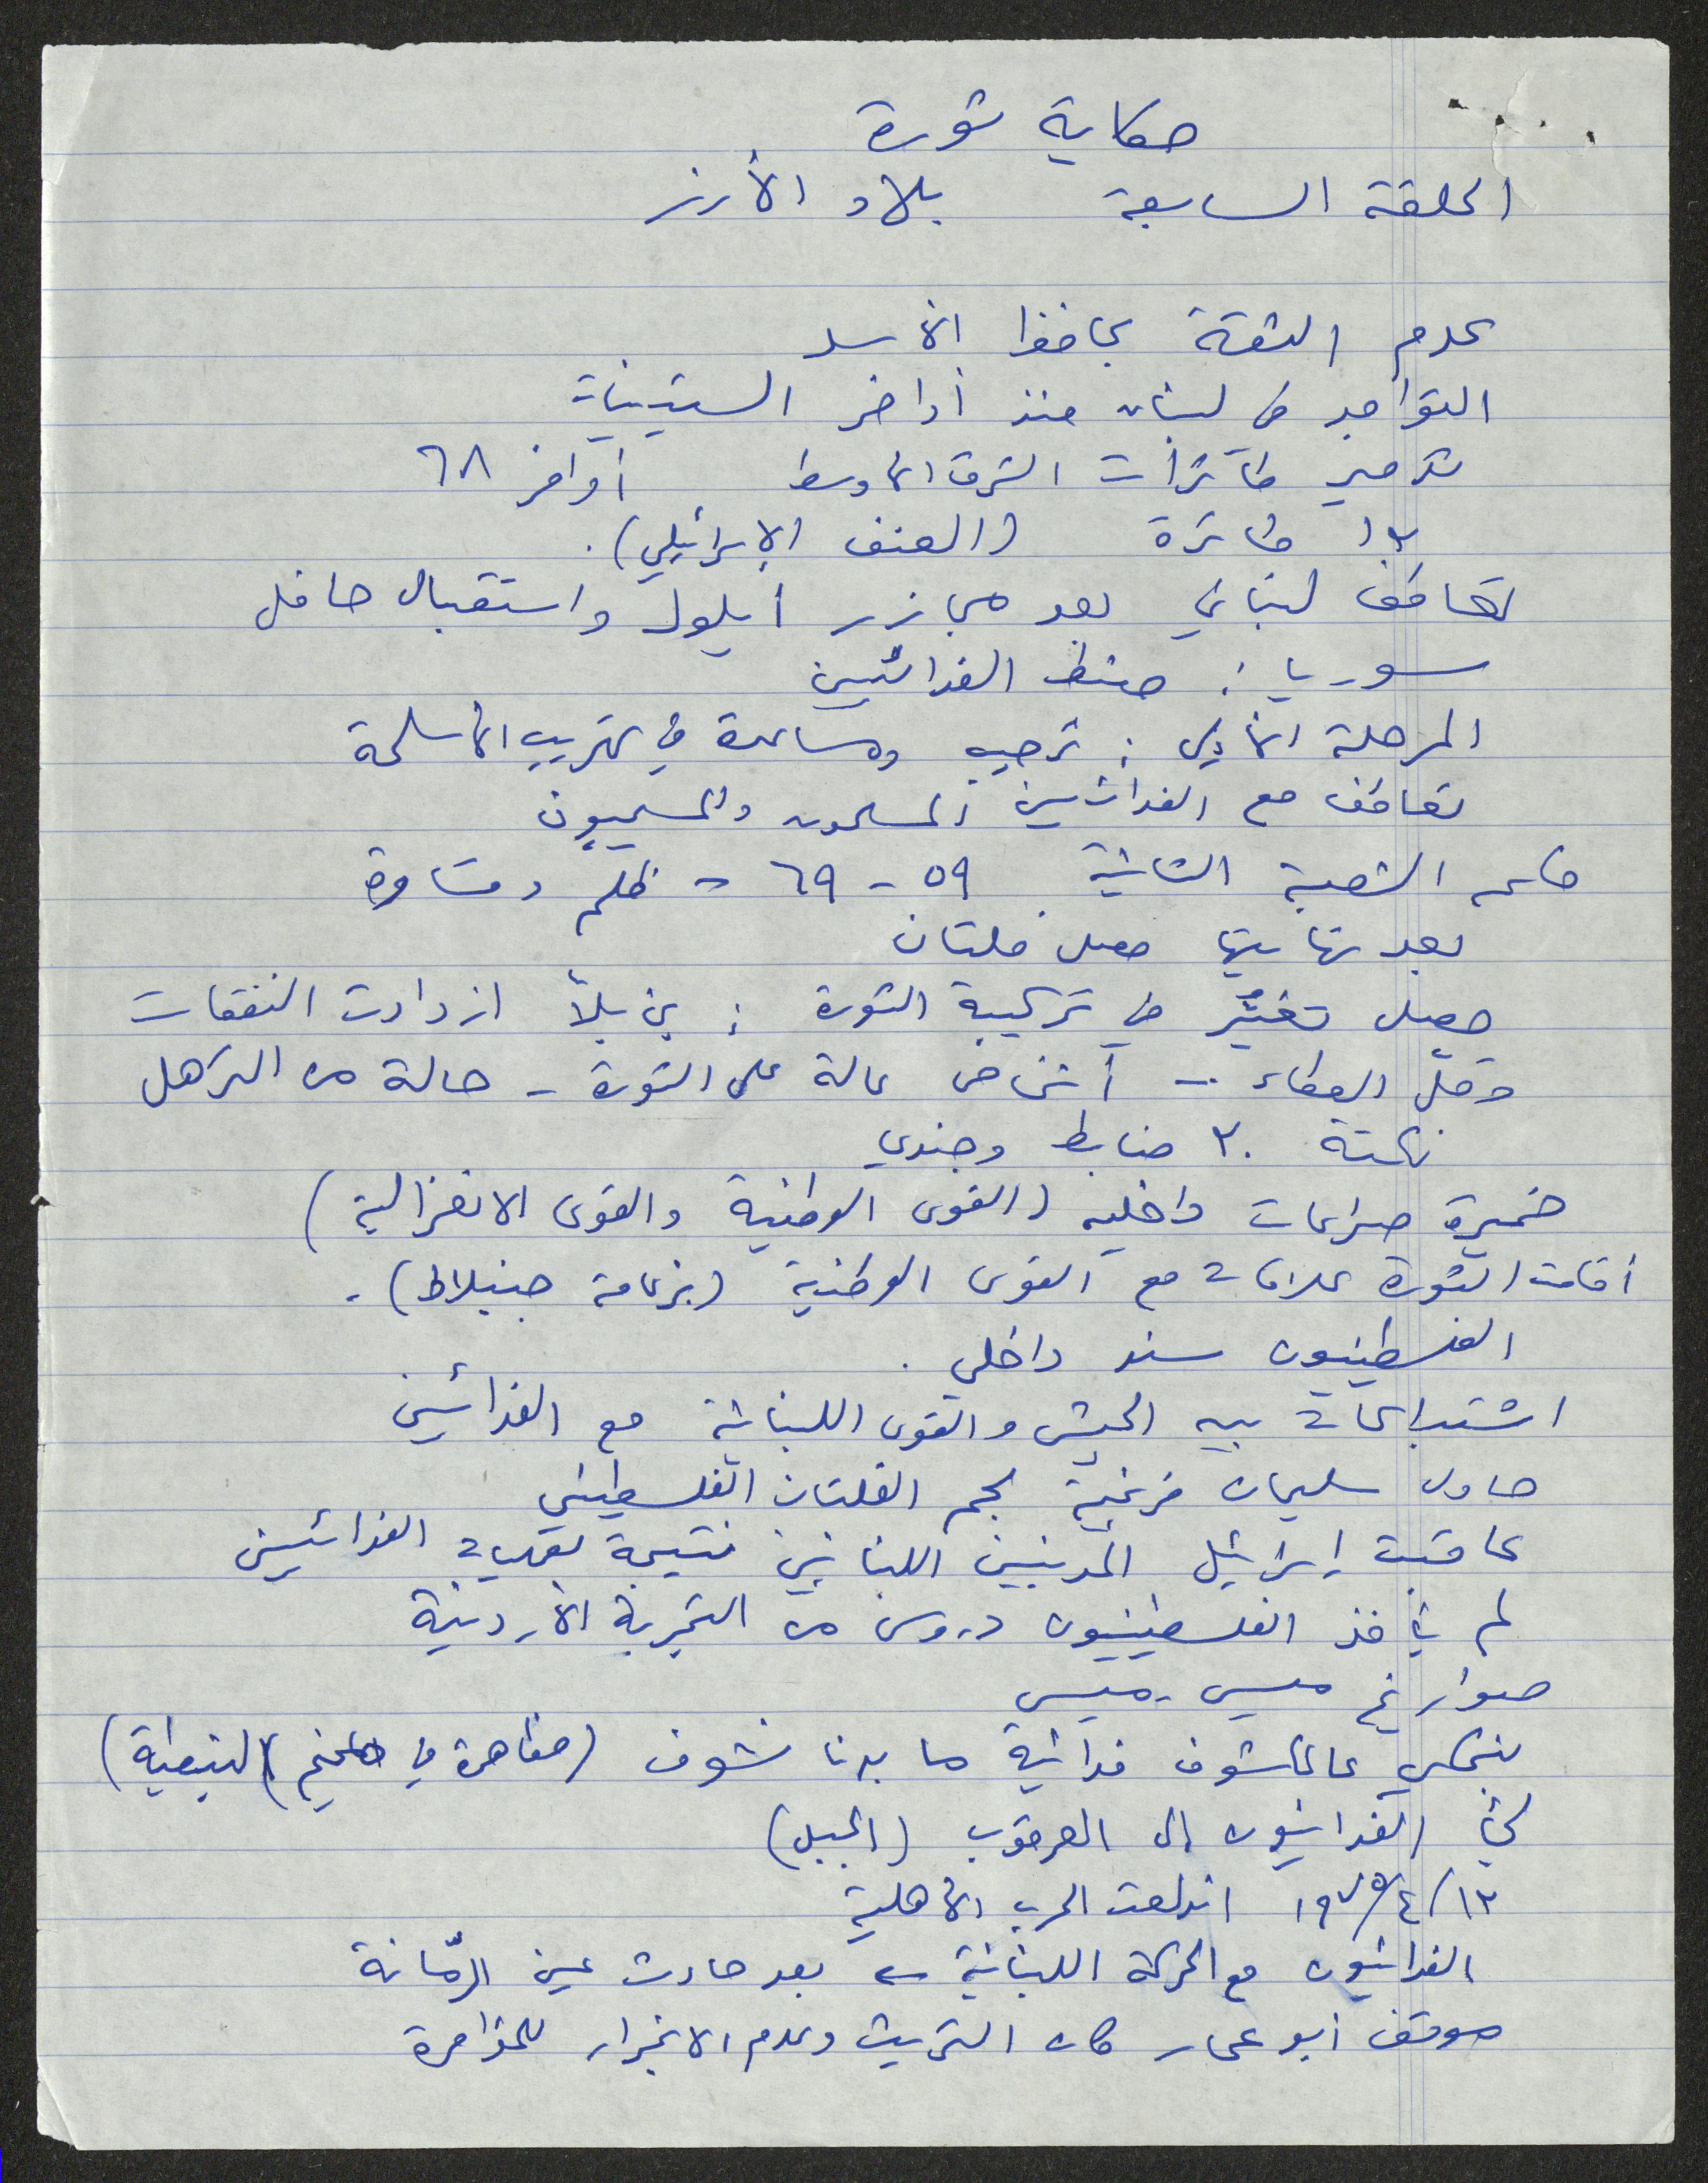 حكاية ثورة
الحلقة السابعة بلاد الأرز
عدم الثقة بحافظ الأسد
التواجد في لبنان منذ أواخر الستينيات
تدمير طائرات الشرق الأوسط أواخر ٦٨
١٣ طائرة (العنف الإسرائيلي).
تعاطف لبناني بعد مجازر أيلول واستقبال حافل
سوريا: ضبط الفدائيين
المرحلة الأولى: ترحيب ومساعدة في تهريب الأسلحة
تعاطف مع الفدائيين المسلمون والمسيحيون
الشعبة الثانية ٥٩ - ٦٩ = ظلم وقساوة
بعد نهايتها حصل فلتان
حصل تغيّر في تركيبة الثورة: ازدادت النفقات
وقلّ العطاء - أشخاص عالة على الثورة - حالة من الترهل
نكتة ٣٠ ضابط وجندي
خميرة صراعات داخلية (القوى الوطنية والقوى الانعزالية)
أقامت الثورة علاقات مع القوى الوطنية (بزعامة جنبلاط).
الفلسطينيون سند داخلي.
اشتباكات بين الجيش والقوى اللبنانية مع الفدائيين
حاول سليمان فرنجية لجم الفلتان الفلسطيني
عاقبت إسرائيل المدنيين اللبنانيين نتيجة لعمليات الفدائيين
لم يأخذ الفلسطينيون دروس من التجربة الأردنية
صواريخ ميس-ميس
بنحكي عالمكشوف فدائية ما بدنا نشوف (مظاهرة في مخيم النبطية)
لجأ الفدائيون إلى العرقوب (الجبل)
١٣/٤/١٩٧٥ اندلعت الحرب الأهلية
الفدائيون مع الحركة اللبنانية بعد حادث عين الرمّانة
موقف أبو عمار كان التريث وعدم الانجرار للمؤامرة